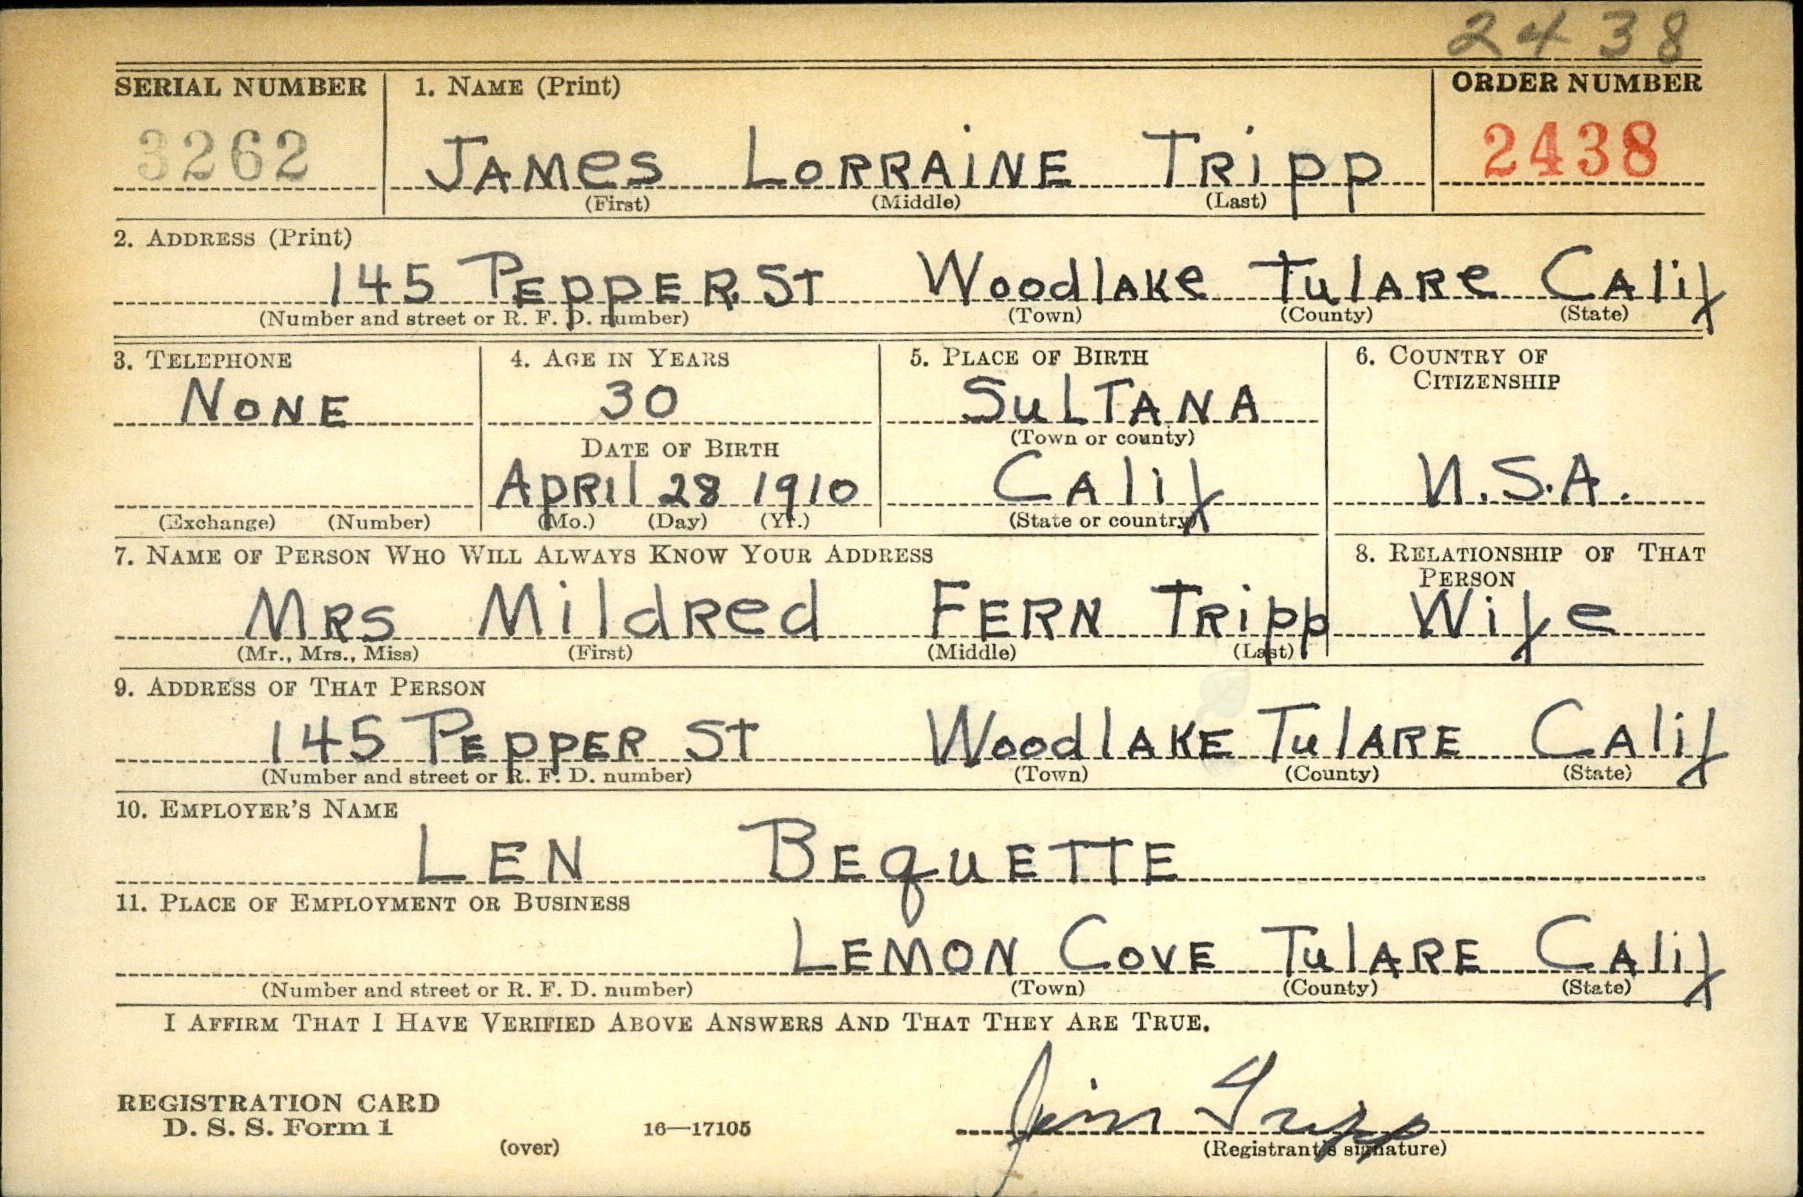 2438
SERIAL NUMBER 1. NAME (Print) ORDER NUMBER
3262 JAMES LORRAINE TRIPP 2438
(First) (Middle) (Last)
2. ADDRESS (Print)
145 PEPPER ST WOODLAKE TULARE CALIF
(Number and street or R. F. D. number) (Town) (County) (State)
3. TELEPHONE 4. AGE IN YEARS 5. PLACE OF BIRTH 6. COUNTRY OF
CITIZENSHIP
NONE 30 SULTANA
DATE OF BIRTH (Town or county)
APRIL 28 1910 CALIF U.S.A.
(Exchange) (Number) (Mo.) (Day) (Yr.) (State or country)
7. NAME OF PERSON WHO WILL ALWAYS KNOW YOUR ADDRESS 8. RELATIONSHIP OF THAT
PERSON
MRS MILDRED FERN TRIPP Wife
(Mr., Mrs., Miss) (First) (Middle) (Last)
9. ADDRESS OF THAT PERSON
145 PEPPER ST WOODLAKE TULARE CALIF
(Number and street or R. F. D. number) (Town) (County) (State)
10. EMPLOYER'S NAME
LEN BEQUETTE
11. PLACE OF EMPLOYMENT OR BUSINESS
LEMON COVE TULARE CALIF
(Number and street or R. F. D. number) (Town) (County) (State)
I AFFIRM THAT I HAVE VERIFIED ABOVE ANSWERS AND THAT THEY ARE TRUE.
Jim Tripp
REGISTRATION CARD
D. S. S. Form 1
(over) 16—17105 (Registrant's signature)